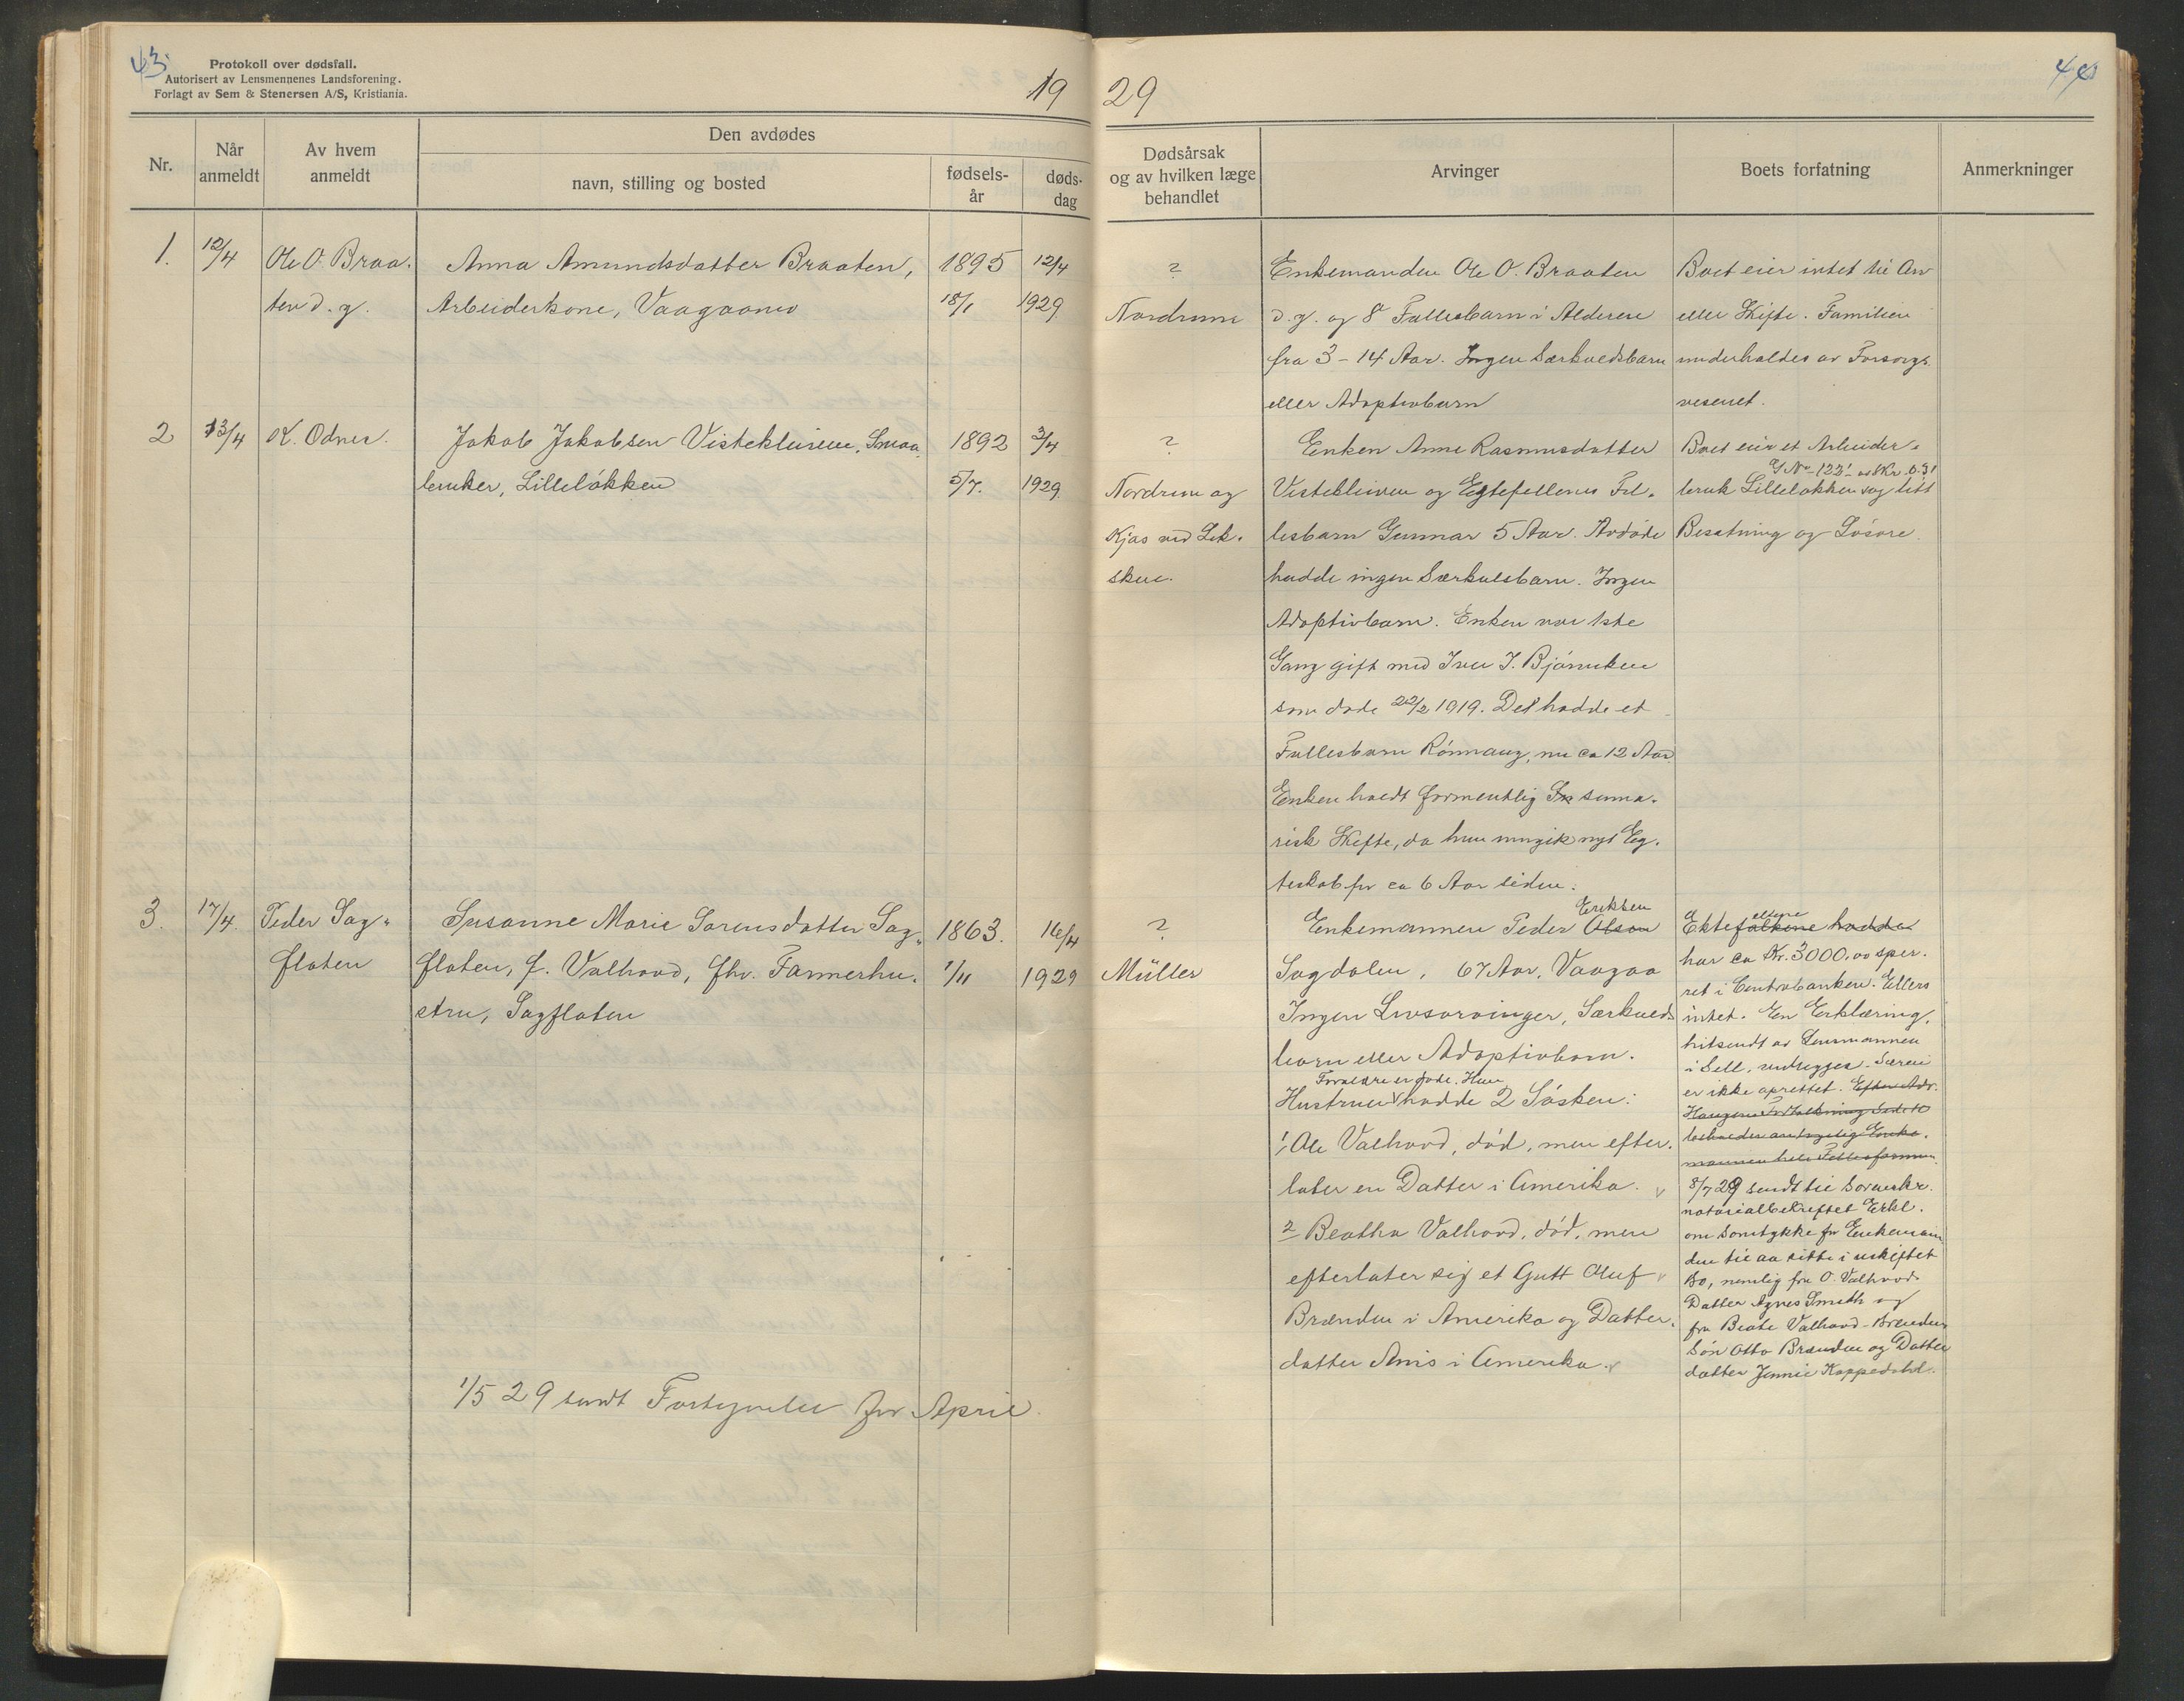 43.
Protokoll over dødsfall.
Autorisert av Lensmennenes Landsforening.
Forlagt av Sem & Stenersen A/S, Kristiania.
19 29
Nr.
Når anmeldt
Av hvem anmeldt
Den avdødes
navn, stilling og bosted
fødselsår
dødsdag
Dødsårsak og av hvilken læge behandlet
Arvinger
Boets forfatning
Anmerkninger
1.
12/4
Ole O. Braa-
ten d. y.
Anna Amundsdatter Braaten,
Arbeiderkone, Vaagaamo
1895
18/1
12/4
1929
?
Nordrum
Enkemanden Ole O. Braaten
d. y. og 8 Fællesbarn i Alderen
fra 3 - 14 Aar. Ingen Særkuldsbarn
eller Adoptivbarn
Boet eier intet til Arv
eller Skifte. Familien
underholdes av Forsorgs-
vesenet.
2
13/4
K. Odnes.
Jakob Jakobsen Vistekleiven, Smaa-
bruker, Lilleløkken
1892
5/7.
3/4
1929
?
Nordrum og
Kjos ved Lek-
Enken Anne Rasmusdatter
Vistekleiven og Egtefellenes Fel-
lesbarn Gunnar 5 Aar. Avdøde
hadde ingen Særkulsbarn. Ingen
Adoptivbarn. Enken var 1ste
Gang gift med Iver I. Bjørnuken
som døde 22/2 1919. De hadde et
Fællesbarn Rønnaug, nu ca 12 Aar.
Enken holdt formentlig suma-
risk Skifte, da hun inngik nyt Eg-
teskab for ca 6 Aar siden.
Boet eier et Arbeider-
G No 122 1 av Skr. 0.31
bruk Lilleløkken og litt
Besætning og Løsøre.
3.
17/4.
Peder Sag-
flaten
Susanne Marie Sørensdatter Sag-
flaten, f. Valhovd, fhv. Farmerhu-
stru, Sagflaten
1863.
1/11
16/4
1929
?
Müller
Eriksen
Enkemannen Peder Olson
Sagdalen, 67 Aar, Vaagaa
Ingen Livsarvinger, Særkuld-
barn eller Adoptivbarn.
Foreldre er døde. Hun
Hustruen hadde 2 Søsken:
1, Ole Valhovd, død, men efter-
later en Datter i Amerika.
2 Beatha Valhovd, død, men
efterlater sig et Gutt Oluf
Brænden i Amerika og Datter-
datter Anis i Amerika.
Ektefolkene hadde
har ca Kr. 3000,00 spar-
ret i Centralbanken. Ellers
intet. En Erklæring,
hitsendt av Lensmannen
i Sell, vedlegges. Særeie
er ikke oprettet. Efter Adv.
8/7 29 sendt til Sorenskr.
notorialbekreftet Erkl.
om Samtykke for Enkeman-
den til aa sitte i uskiftet
Bo, nemlig fra O. Valhovds
Datter Agnes Smith og
fra Beate Valhovd-Brænden
Søn Otto Brænden og Datter
datter Jennie Koppedahl.
1/5 29 sendt Fortegnelse for April.